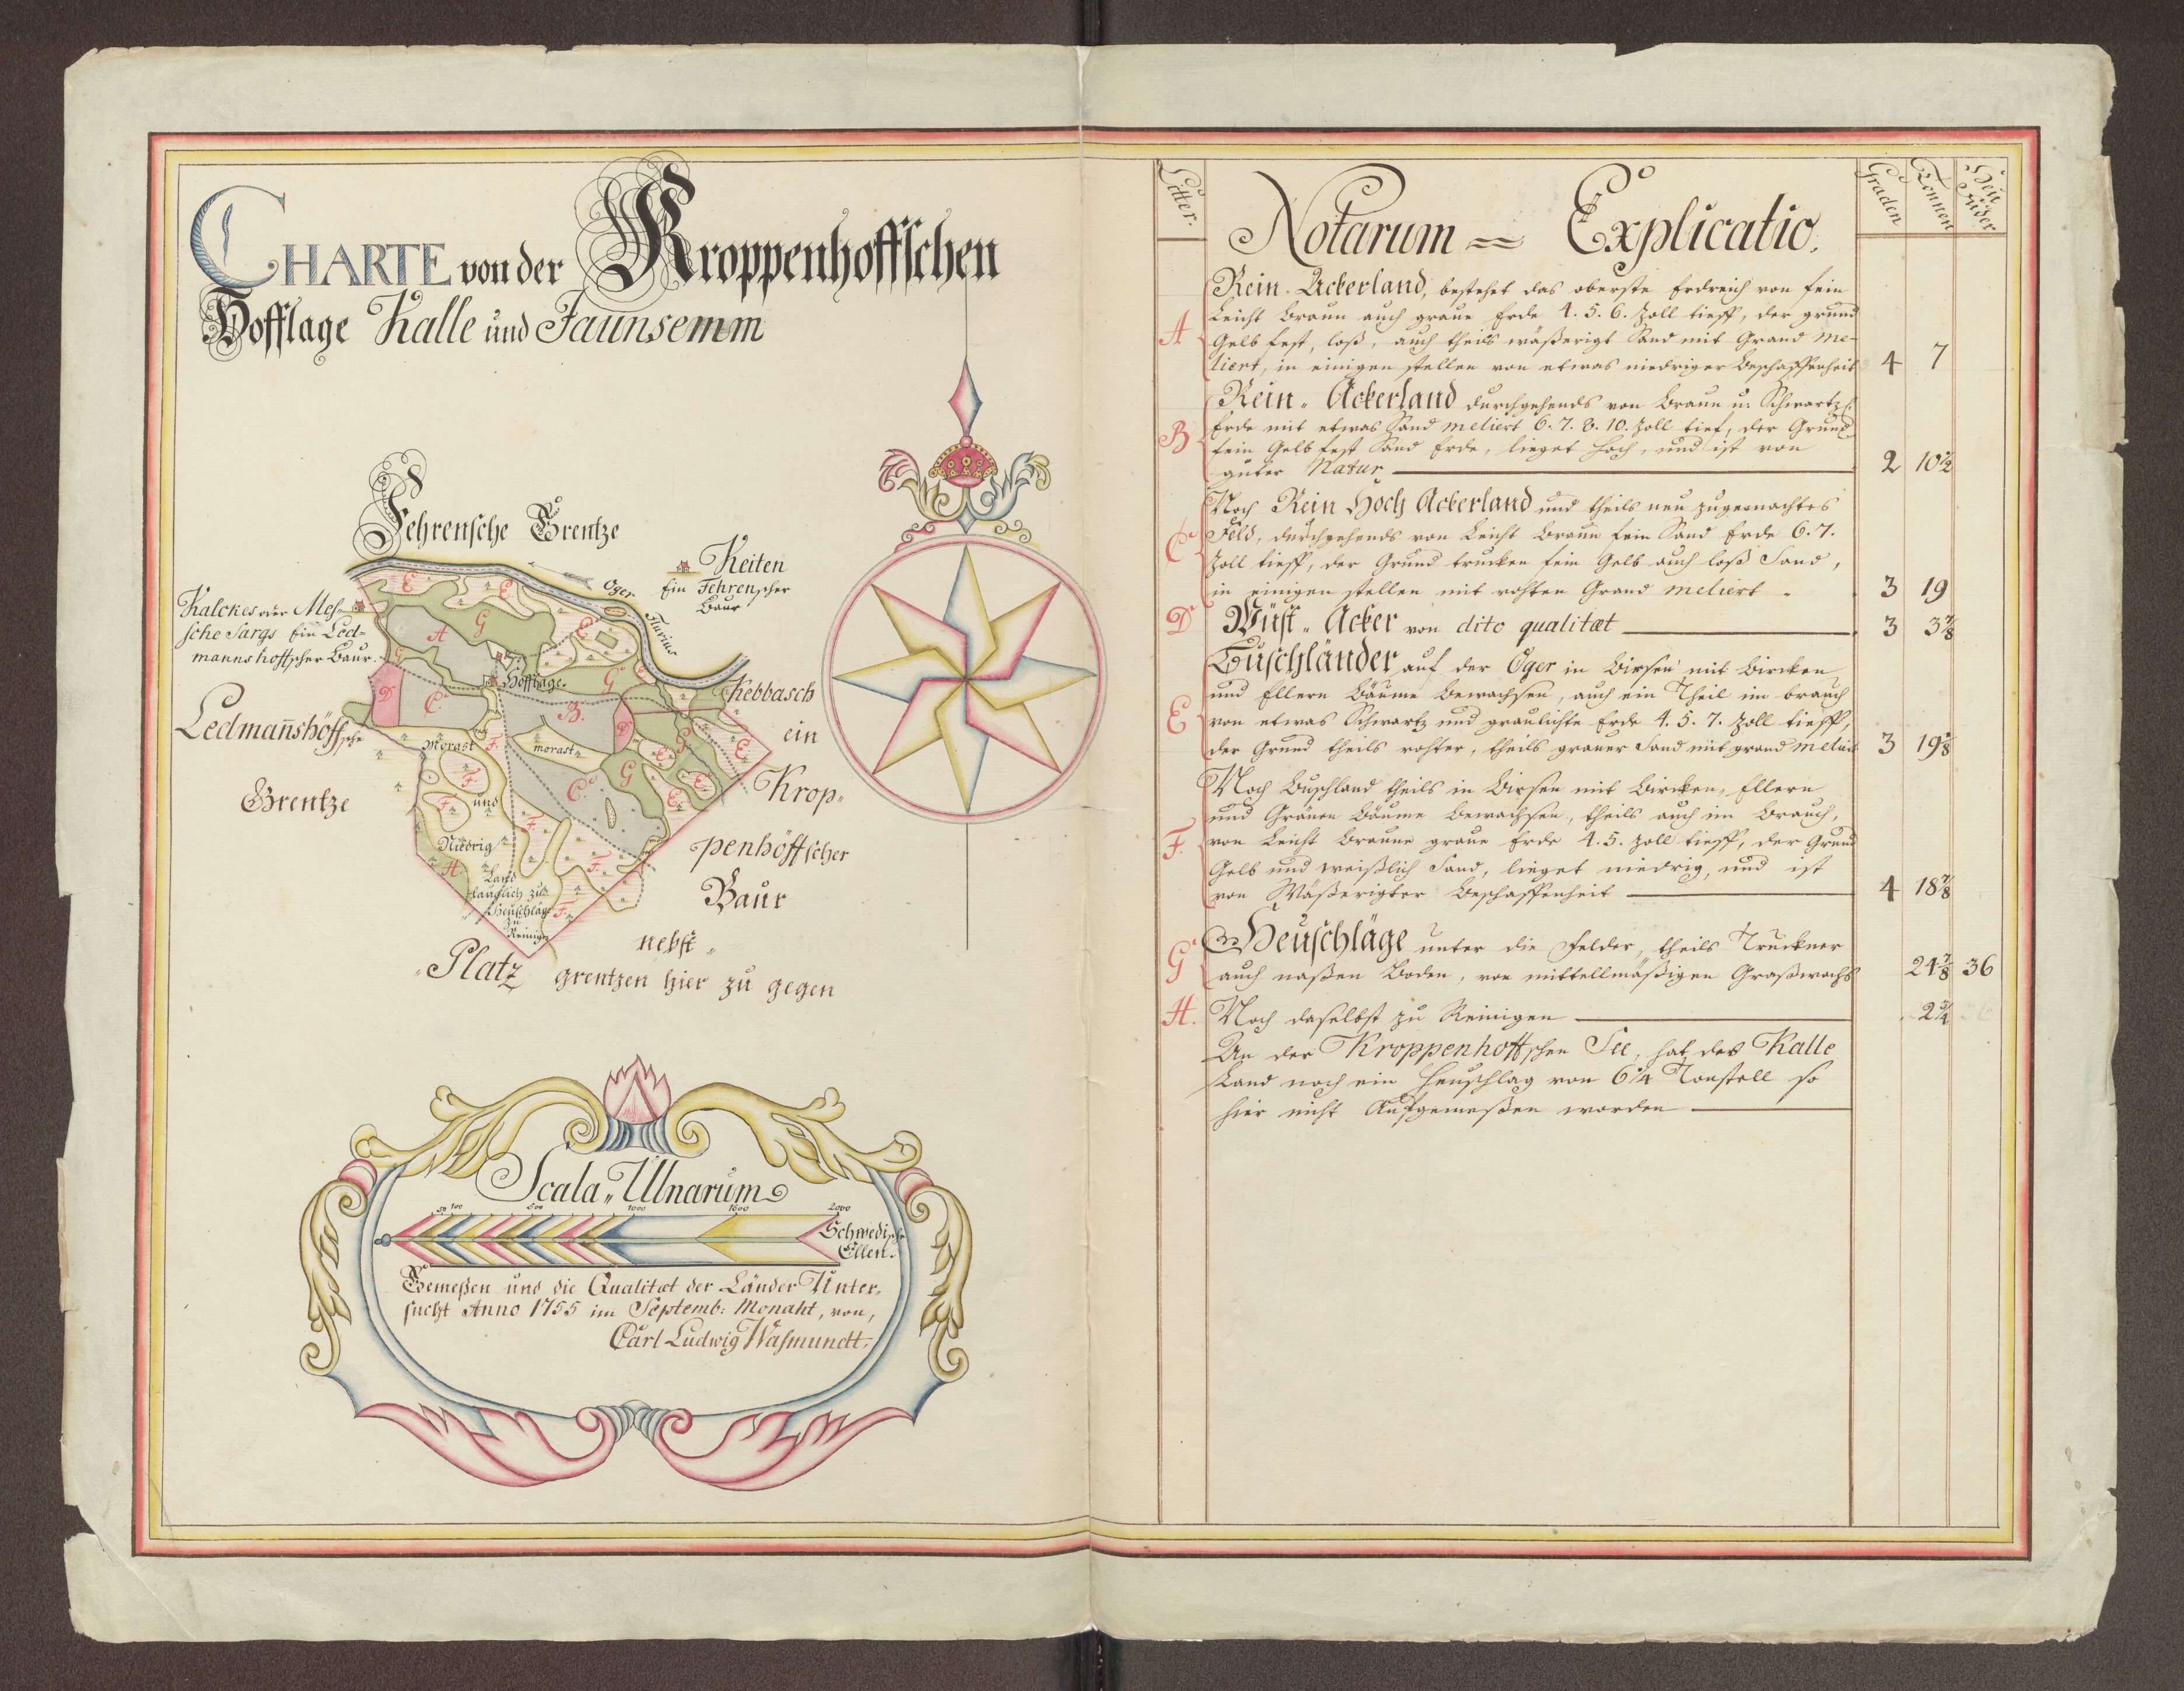 CHARTE von der Kroppenhoffschen
Hofflage Kalle und Jaunsemm
Fehrensche Grentze
Keiten
Ein Fehrenscher
Baur
Oger Fluvius
Kalckes oder Mes-
sche Sargs Ein Led-
mannshoffscher Baur.
Ledmanshöffsche
Grentze
Kebbasch
ein
Krop-
penhöffscher
Baur
nebst
Platz grentzen hier zu gegen
E
E
A
G
E
G
Hofflage.
G
E
D
C.
B.
D
Morast
F.
morast
G
E
E
F.
G
E
C.
F.
und
E
F.
Niedrig
F.
H.
Land
tauglich zu
Heuschläge
F.
zu
Reinigen
Scala Ulnarum
50 100 500 1000 1500 2000
Schwedische
Ellen.
Gemeßen und die Qualitæt der Länder Unter-
sucht Anno 1755 im Septemb: Monaht, von,
Carl Ludwig Wasmundt.
Litter.
Notarum = Explicatio.
Graden
Tonnen
Heu Füder
Rein Ackerland, bestehet das oberste Erdreich von fein
Leicht Braun auch graue Erde 4. 5. 6. Zoll tieff, der grund
A Gelb fest, loß, auch theils wäßerigt Sand mit Grand me-
liert, in einigen stellen von etwas niedriger Beschaffenheit 4 7
Rein Ackerland durchgehends von Braun u: Schwartz
Erde mit etwas Sand meliert 6. 7. 8. 10. Zoll tief, der Grund
B fein Gelb fest Sand Erde, lieget hoch, und ist von
guter Natur 2 10½
Noch Rein Hoch Ackerland und theils neu zugemachtes
C Feld, durchgehends von Leicht Braun fein Sand Erde 6. 7.
Zoll tieff, der Grund trucken fein Gelb auch loß Sand,
in einigen stellen mit rohten Grand meliert 3 19
D Wüst Acker von dito qualitæt 3 3⅞
Buschländer auf der Oger in Birsen mit Bircken
und Ellern Bäume Bewachsen, auch ein Theil im brauch
E von etwas Schwartz und graulichte Erde 4. 5. 7. Zoll tieff,
der Grund theils rohter, theils grauer Sand mit grand meliert 3 19⅛
Noch Buschland theils in Birsen mit Bircken, Ellern
und Gränen Bäume bewachsen, theils auch im Brauch,
F. von Leicht Braune graue Erde 4. 5. Zoll tieff, der Grund
Gelb und weißlich Sand, lieget niedrig, und ist
von Wäßerigter Beschaffenheit 4 18⅞
Heuschläge unter die Felder, theils Truckner
G auch naßen Boden, von mittellmäßigen Graßwachs 24⅞ 36
H. Noch daselbst zu Reinigen 2¾
An der Kroppenhoffschen See, hat das Kalle
Land noch ein Heuschlag von 6¼ Tonstell so
hier nicht Aufgemeßen worden